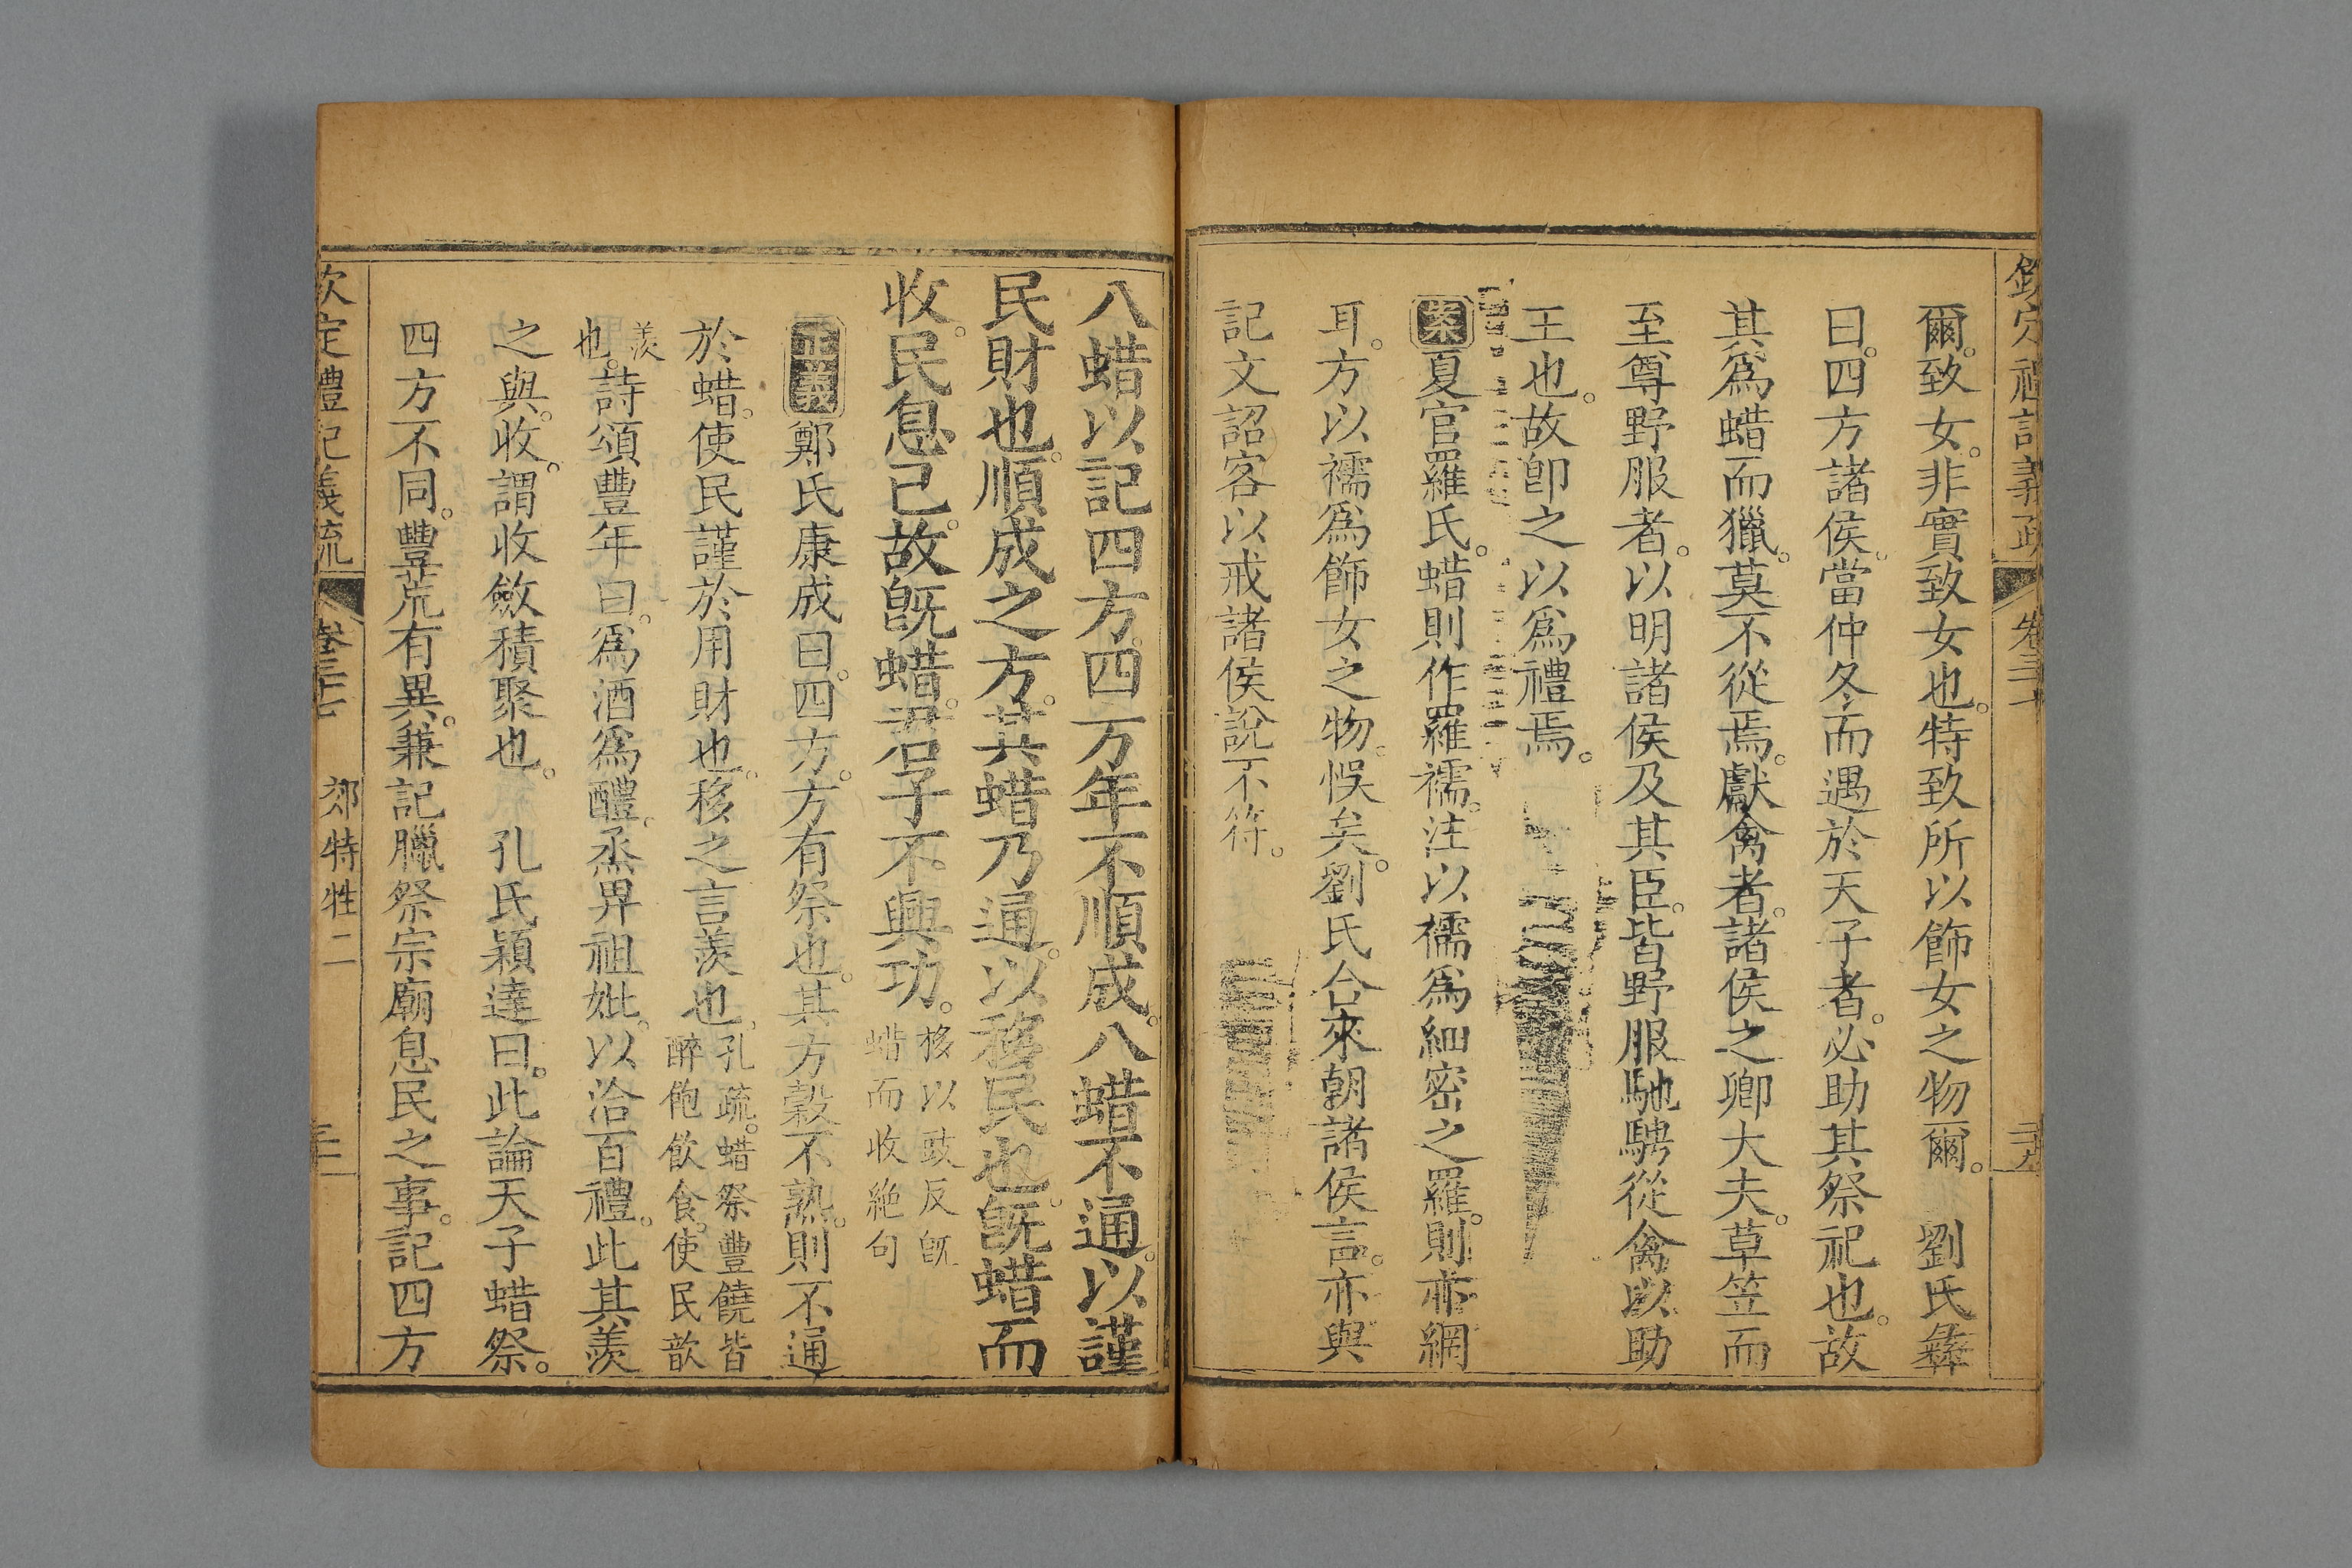 欽定禮記義疏 卷三十 二九
爾。致女。非實致女也。特致所以飾女之物爾。 劉氏彝
曰。四方諸侯。當仲冬而遇於天子者。必助其祭祀也。故
其爲蜡而獵。莫不從焉。獻禽者。諸侯之卿大夫。草笠而
至尊野服者。以明諸侯及其臣。皆野服馳騁從禽。以助
王也。故卽之以爲禮焉。
案夏官羅氏。蜡則作羅襦。注以襦爲細密之羅。則亦網
耳。方以襦爲飾女之物。悞矣。劉氏合來朝諸侯言。亦與
記文詔客以戒諸侯說不符。
八蜡以記四方。四方年不順成。八蜡不通。以謹
民財也。順成之方。其蜡乃通。以移民也。旣蜡而
收。民息已。故旣蜡。君子不興功。移以豉反旣
蜡而收絶句
正義鄭氏康成曰。四方。方有祭也。其方穀不熟。則不通
於蜡。使民謹於用財也。移之言羨也。孔疏。蜡祭豐饒皆
醉飽飲食。使民歆
羨
也。詩頌豐年曰。爲酒爲醴。烝畀祖妣。以洽百禮。此其羨
之與。收。謂收斂積聚也。 孔氏穎達曰。此論天子蜡祭。
四方不同。豐荒有異。兼記臘祭宗廟息民之事。記四方
欽定禮記義疏 卷三十七 郊特牲二 三十